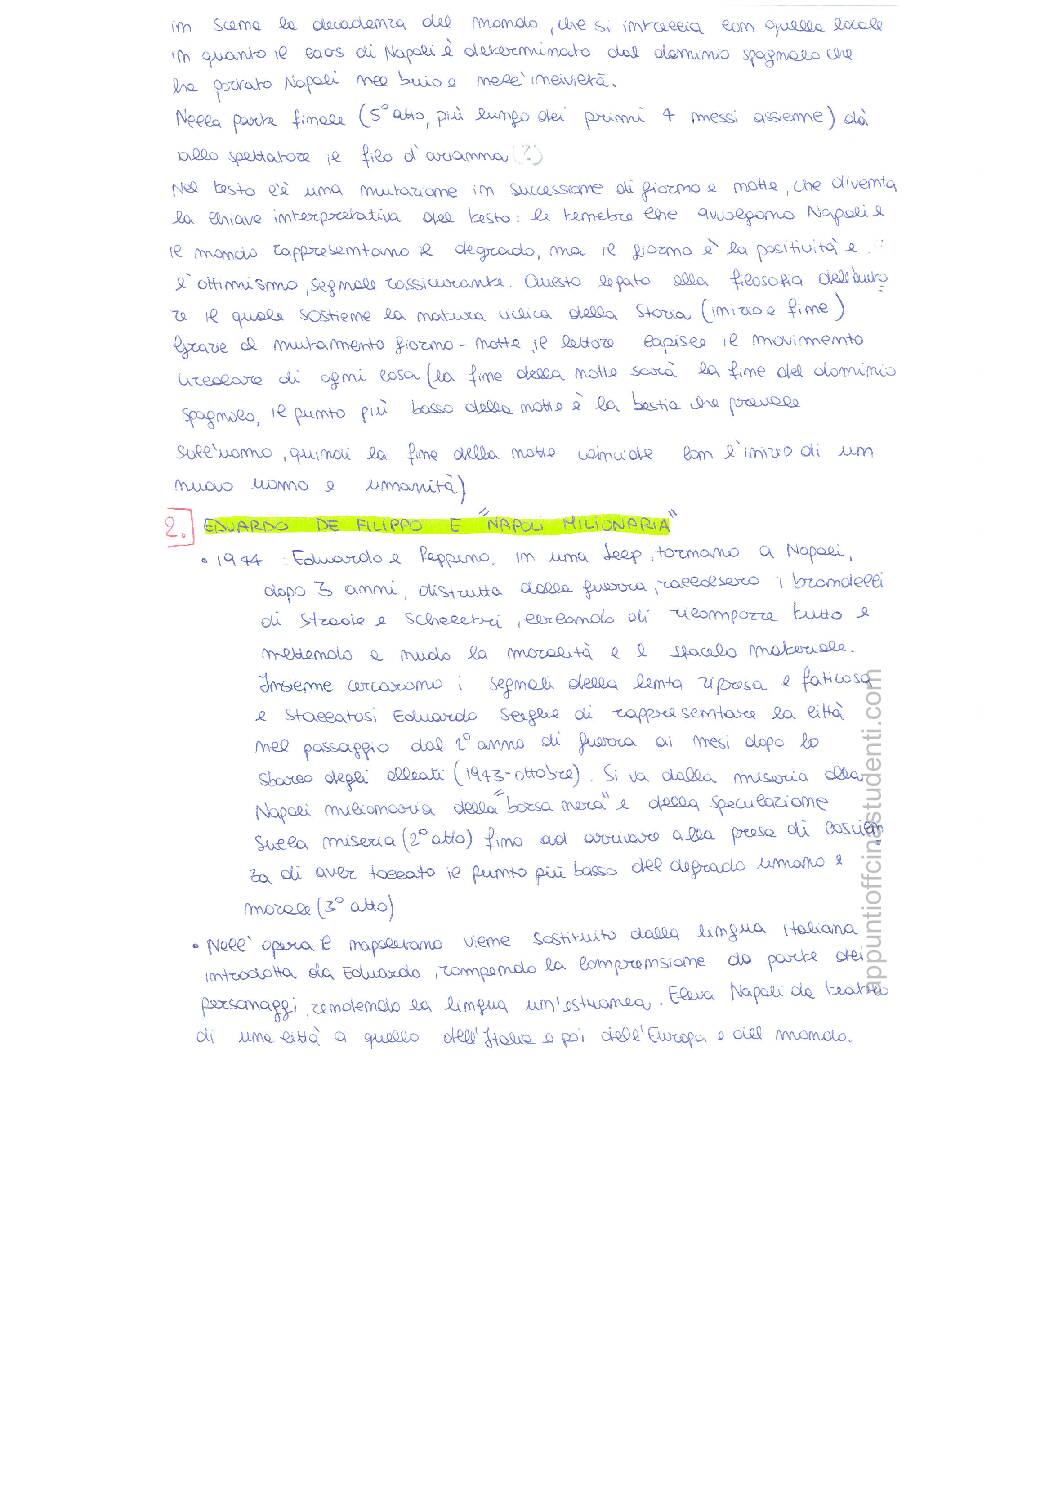 in scena la decadenza del mondo, che si intreccia con quella locale
in quanto il caos di Napoli è determinato dal dominio spagnolo che
ha portato Napoli nel buio e nell'inciviltà.
Nella parte finale (5° atto, più lungo dei primi 4 messi assieme) dà
allo spettatore il filo d'arianna (?)
Nel testo c'è una mutazione in successione di giorno e notte, che diventa
la chiave interpretativa del testo: le tenebre che avvolgono Napoli e
il mondo rappresentano il degrado, ma il giorno è la positività e
l'ottimismo, segnale rassicurante. Questo legato alla filosofia dell'auto
re il quale sostiene la natura ciclica della Storia (inizio e fine)
Grave al mutamento giorno - notte, il lettore capisce il movimento
circolare di ogni cosa (la fine della notte sarà la fine del dominio
spagnolo, il punto più basso della notte è la bestia che prevale
sull'uomo, quindi la fine della notte coincide con l'inizio di un
nuovo uomo e umanità)
2. EDUARDO DE FILIPPO E "NAPOLI MILIONARIA"
• 1944 : Eduardo e Peppino, in una Jeep, tornano a Napoli,
dopo 3 anni, distrutta dalla guerra, raccolsero i brandelli
di strade e scheletri, cercando di ricomporre tutto e
mettendo a nudo la moralità e lo sfacelo materiale.
Insieme cercarono i segnali della lenta ripresa e faticosa
e staccatosi Eduardo sceglie di rappresentare la città
nel passaggio dal 2° anno di guerra ai mesi dopo lo
sbarco degli alleati (1943-ottobre). Si va dalla miseria alla
Napoli milionaria della "borsa nera" e della speculazione
sulla miseria (2° atto) fino ad arrivare alla presa di coscien
za di aver toccato il punto più basso del degrado umano e
morale (3° atto)
• Nell'opera il napoletano viene sostituito dalla lingua italiana
introdotta da Eduardo, rompendo la comprensione da parte dei
personaggi, rendendo la lingua un'estranea. Eleva Napoli da teatro
di una città a quello dell'Italia e poi dell'Europa e del mondo.
appuntioffcinastudenti.com